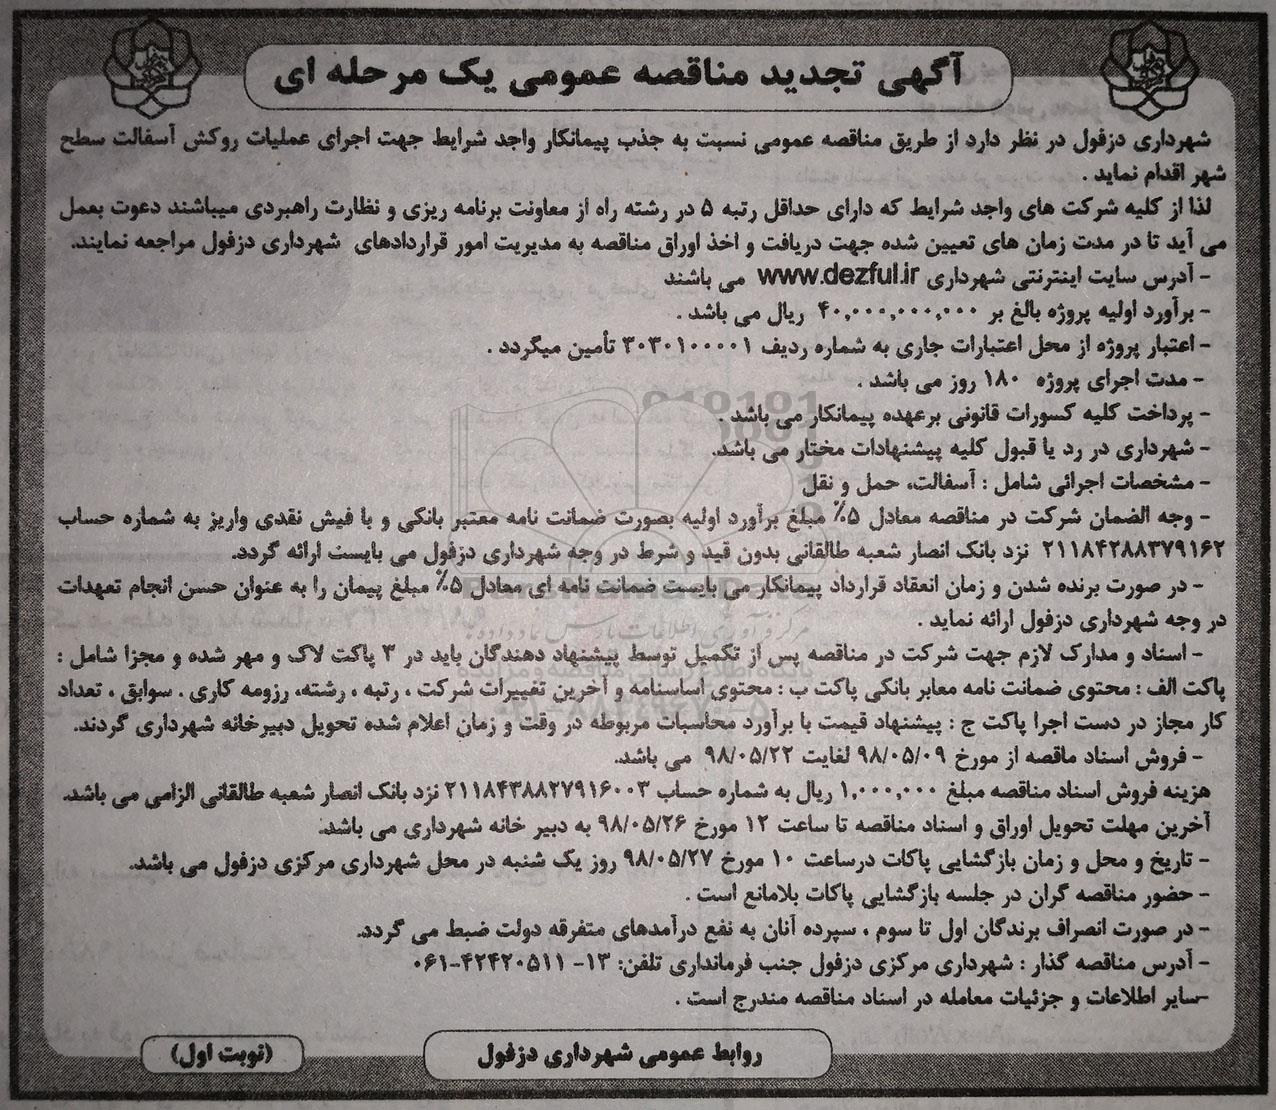 آگهی تجدید مناقصه عمومی یک مرحله ای
شهرداری دزفول در نظر دارد از طریق مناقصه عمومی نسبت به جذب پیمانکار واجد شرایط جهت اجرای عملیات روکش آسفالت سطح
شهر اقدام نماید .
لذا از کلیه شرکت های واجد شرایط که دارای حداقل رتبه ۵ در رشته راه از معاونت برنامه ریزی و نظارت راهبردی میباشند دعوت بعمل
می آید تا در مدت زمان های تعیین شده جهت دریافت و اخذ اوراق مناقصه به مدیریت امور قراردادهای شهرداری دزفول مراجعه نمایند.
- آدرس سایت اینترنتی شهرداری www.dezful.ir می باشند
- برآورد اولیه پروژه بالغ بر ۴۰,۰۰۰,۰۰۰,۰۰۰ ریال می باشد .
- اعتبار پروژه از محل اعتبارات جاری به شماره ردیف ۳۰۳۰۱۰۰۰۰۱ تأمین میگردد .
- مدت اجرای پروژه ۱۸۰ روز می باشد .
- پرداخت کلیه کسورات قانونی برعهده پیمانکار می باشد .
- شهرداری در رد یا قبول کلیه پیشنهادات مختار می باشد.
- مشخصات اجرائی شامل : آسفالت، حمل و نقل
- وجه الضمان شرکت در مناقصه معادل ۵٪ مبلغ برآورد اولیه بصورت ضمانت نامه معتبر بانکی و با فیش نقدی واریز به شماره حساب
۲۱۱۸۴۲۸۸۳۷۹۱۶۲ نزد بانک انصار شعبه طالقانی بدون قید و شرط در وجه شهرداری دزفول می بایست ارائه گردد.
- در صورت برنده شدن و زمان انعقاد قرارداد پیمانکار می بایست ضمانت نامه ای معادل ۵٪ مبلغ پیمان را به عنوان حسن انجام تعهدات
در وجه شهرداری دزفول ارائه نماید .
- اسناد و مدارک لازم جهت شرکت در مناقصه پس از تکمیل توسط پیشنهاد دهندگان باید در ۳ پاکت لاک و مهر شده و مجزا شامل :
پاکت الف : محتوی ضمانت نامه معابر بانکی پاکت ب : محتوی اساسنامه و آخرین تغییرات شرکت ، رتبه ، رشته، رزومه کاری . سوابق ، تعداد
کار مجاز در دست اجرا پاکت ج : پیشنهاد قیمت با برآورد محاسبات مربوطه در وقت و زمان اعلام شده تحویل دبیرخانه شهرداری گردند.
- فروش اسناد ماقصه از مورخ ۹۸/۰۵/۰۹ لغایت ۹۸/۰۵/۲۲ می باشد.
هزینه فروش اسناد مناقصه مبلغ ۱,۰۰۰,۰۰۰ ریال به شماره حساب ۲۱۱۸۴۳۸۸۲۷۹۱۶۰۰۳ نزد بانک انصار شعبه طالقانی الزامی می باشد.
آخرین مهلت تحویل اوراق و اسناد مناقصه تا ساعت ۱۲ مورخ ۹۸/۰۵/۲۶ به دبیر خانه شهرداری می باشد.
- تاریخ و محل و زمان بازگشایی پاکات درساعت ۱۰ مورخ ۹۸/۰۵/۲۷ روز یک شنبه در محل شهرداری مرکزی دزفول می باشد.
- حضور مناقصه گران در جلسه بازگشایی پاکات بلامانع است .
- در صورت انصراف برندگان اول تا سوم ، سپرده آنان به نفع درآمدهای متفرقه دولت ضبط می گردد.
- آدرس مناقصه گذار : شهرداری مرکزی دزفول جنب فرمانداری تلفن: ۱۳- ۴۲۴۲۰۵۱۱-۰۶۱
-سایر اطلاعات و جزئیات معامله در اسناد مناقصه مندرج است .
روابط عمومی شهرداری دزفول
(نوبت اول)